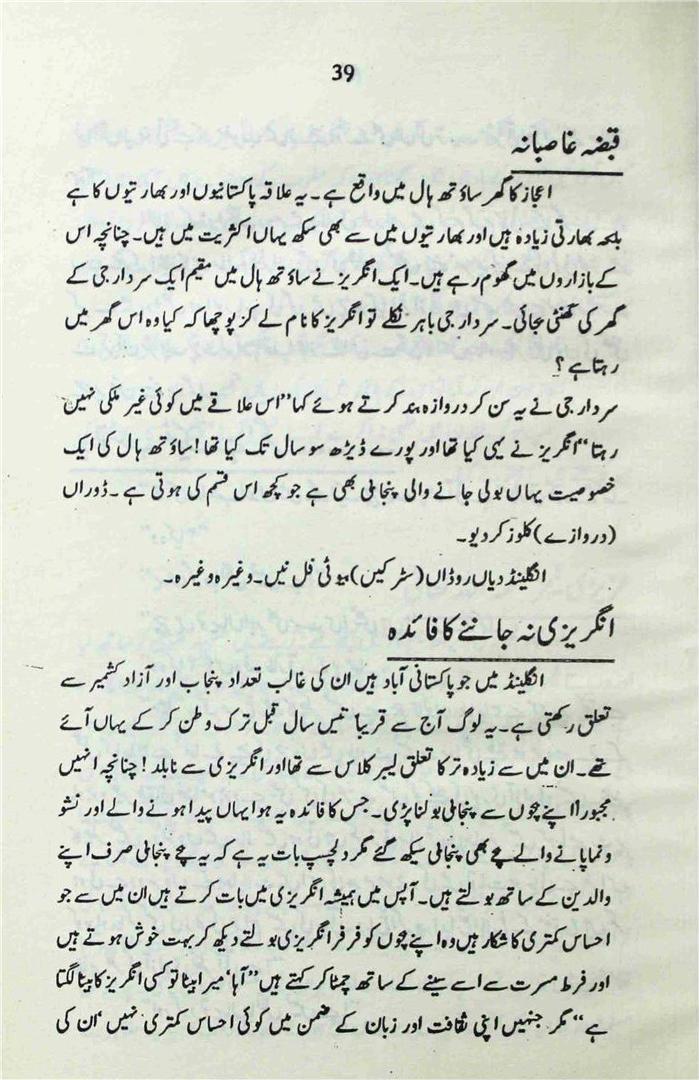 39
قبضہ غاصبانہ
اعجاز کا گھر ساؤتھ ہال میں واقع ہے۔ یہ علاقہ پاکستانیوں اور بھارتیوں کا ہے
بلحہ بھارتی زیادہ ہیں اور بھارتیوں میں سے بھی سکھ یہاں اکثریت میں ہیں۔ چنانچہ اس
کے بازاروں میں گھوم رہے ہیں۔ ایک انگریز نے ساؤتھ ہال میں مقیم ایک سردار جی کے
گھر کی گھنٹی بجائی۔ سردار جی باہر نکلے تو انگریز کا نام لے کر پوچھا کہ کیا وہ اس گھر میں
رہتا ہے؟
سردار جی نے یہ سن کر دروازہ بند کرتے ہوئے کہا ”اس علاقے میں کوئی غیر ملکی نہیں
رہتا“ انگریز نے یہی کیا تھا اور پورے ڈیڑھ سو سال تک کیا تھا! ساؤتھ ہال کی ایک
خصوصیت یہاں بولی جانے والی پنجابی بھی ہے جو کچھ اس قسم کی ہوتی ہے۔ ڈوراں
(دروازے) کلوز کر دیو۔
انگلینڈ دیاں روڈاں (سڑکیں) بیوٹی فل نیں۔ وغیرہ وغیرہ۔
انگریزی نہ جاننے کا فائدہ
انگلینڈ میں جو پاکستانی آباد ہیں ان کی غالب تعداد پنجاب اور آزاد کشمیر سے
تعلق رکھتی ہے۔ یہ لوگ آج سے قریباً تیس سال قبل ترک وطن کر کے یہاں آئے
تھے۔ ان میں سے زیادہ تر کا تعلق لیبر کلاس سے تھا اور انگریزی سے نابلد! چنانچہ انہیں
مجبوراً اپنے بچوں سے پنجابی بولنا پڑی۔ جس کا فائدہ یہ ہوا یہاں پیدا ہونے والے اور نشو
ونما پانے والے بچے بھی پنجابی سیکھ گئے مگر دلچسپ بات یہ ہے کہ یہ بچے پنجابی صرف اپنے
والدین کے ساتھ بولتے ہیں۔ آپس میں ہمیشہ انگریزی میں بات کرتے ہیں ان میں سے جو
احساس کمتری کا شکار ہیں وہ اپنے بچوں کو فرفر انگریزی بولتے دیکھ کر بہت خوش ہوتے ہیں
اور فرط مسرت سے اسے سینے کے ساتھ چمٹا کر کہتے ہیں ”آہا‘ میرا بیٹا تو کسی انگریز کا بیٹا لگتا
ہے“ مگر جنہیں اپنی ثقافت اور زبان کے ضمن میں کوئی احساس کمتری نہیں‘ ان کی